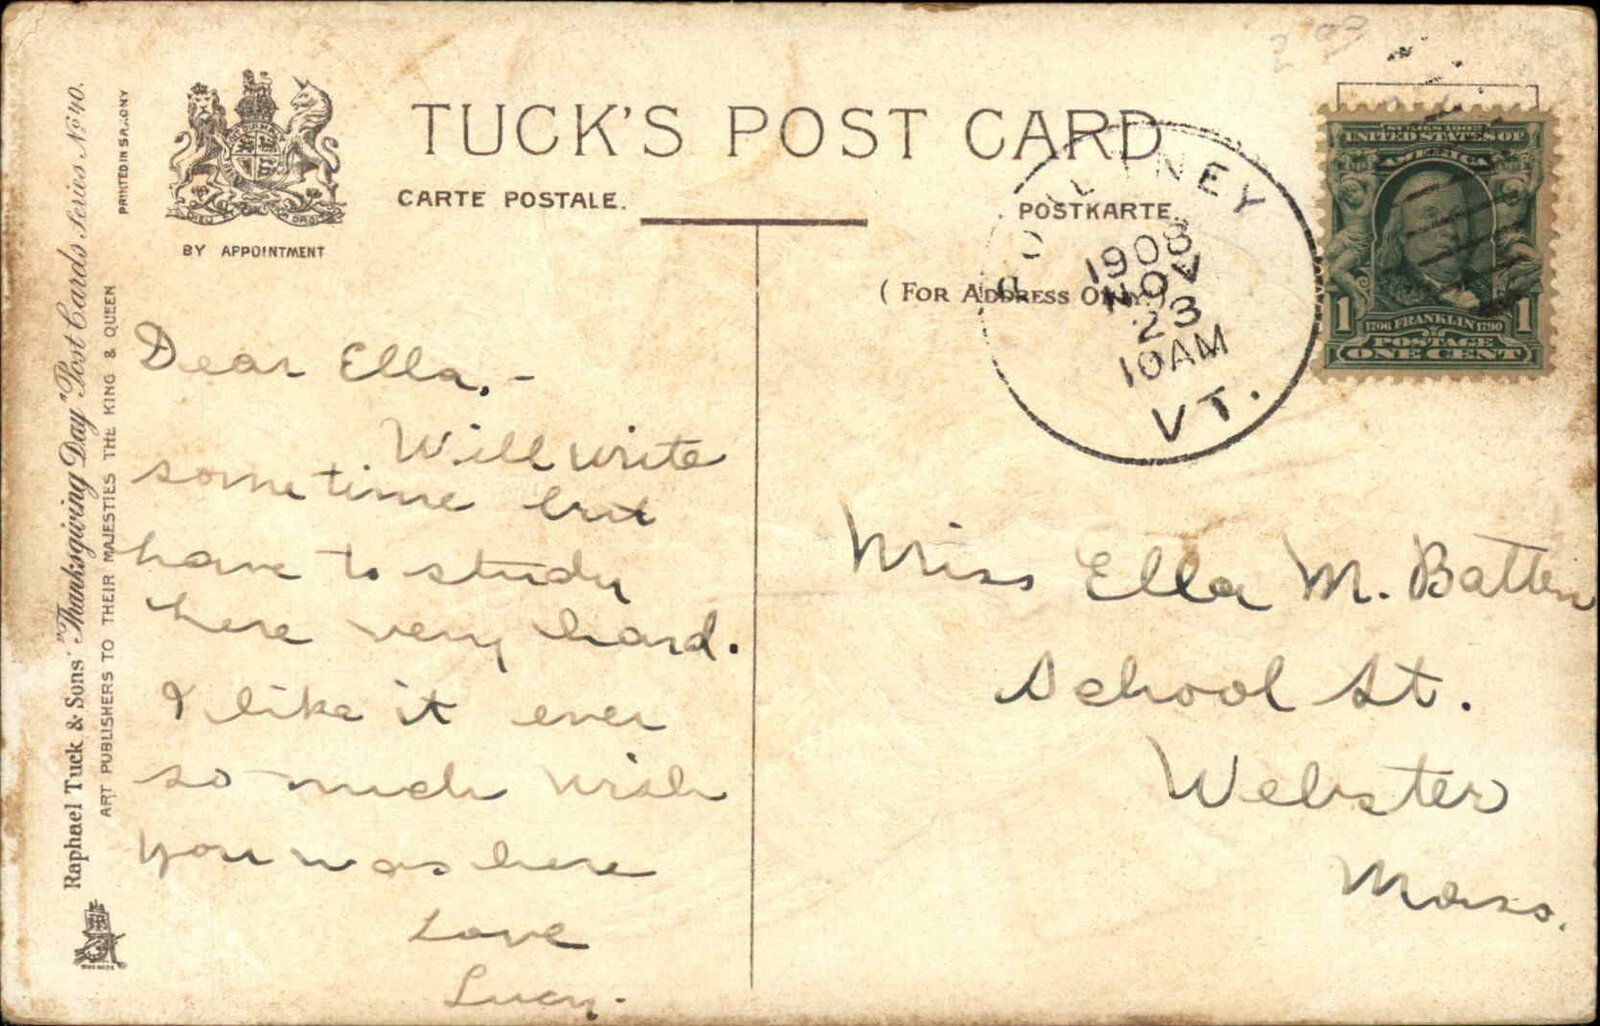 TUCK'S POST CARD
CARTE POSTALE.
POSTKARTE.
(FOR ADDRESS ONLY.)
BY APPOINTMENT
PRINTED IN SAXONY
Raphael Tuck & Sons' "Thanksgiving Day" Post Cards Series No 40.
ART PUBLISHERS TO THEIR MAJESTIES THE KING & QUEEN
1908
NOV
23
10AM
VT.
SERIES 1902
UNITED STATES OF
AMERICA
1 1706 FRANKLIN 1790 1
POSTAGE
ONE CENT
Dear Ella,-
Will write
some time but
have to study
here very hard.
I like it ever
so much wish
you was here
Love
Lucy.
Miss Ella M. Batten
School St.
Webster
Mass.